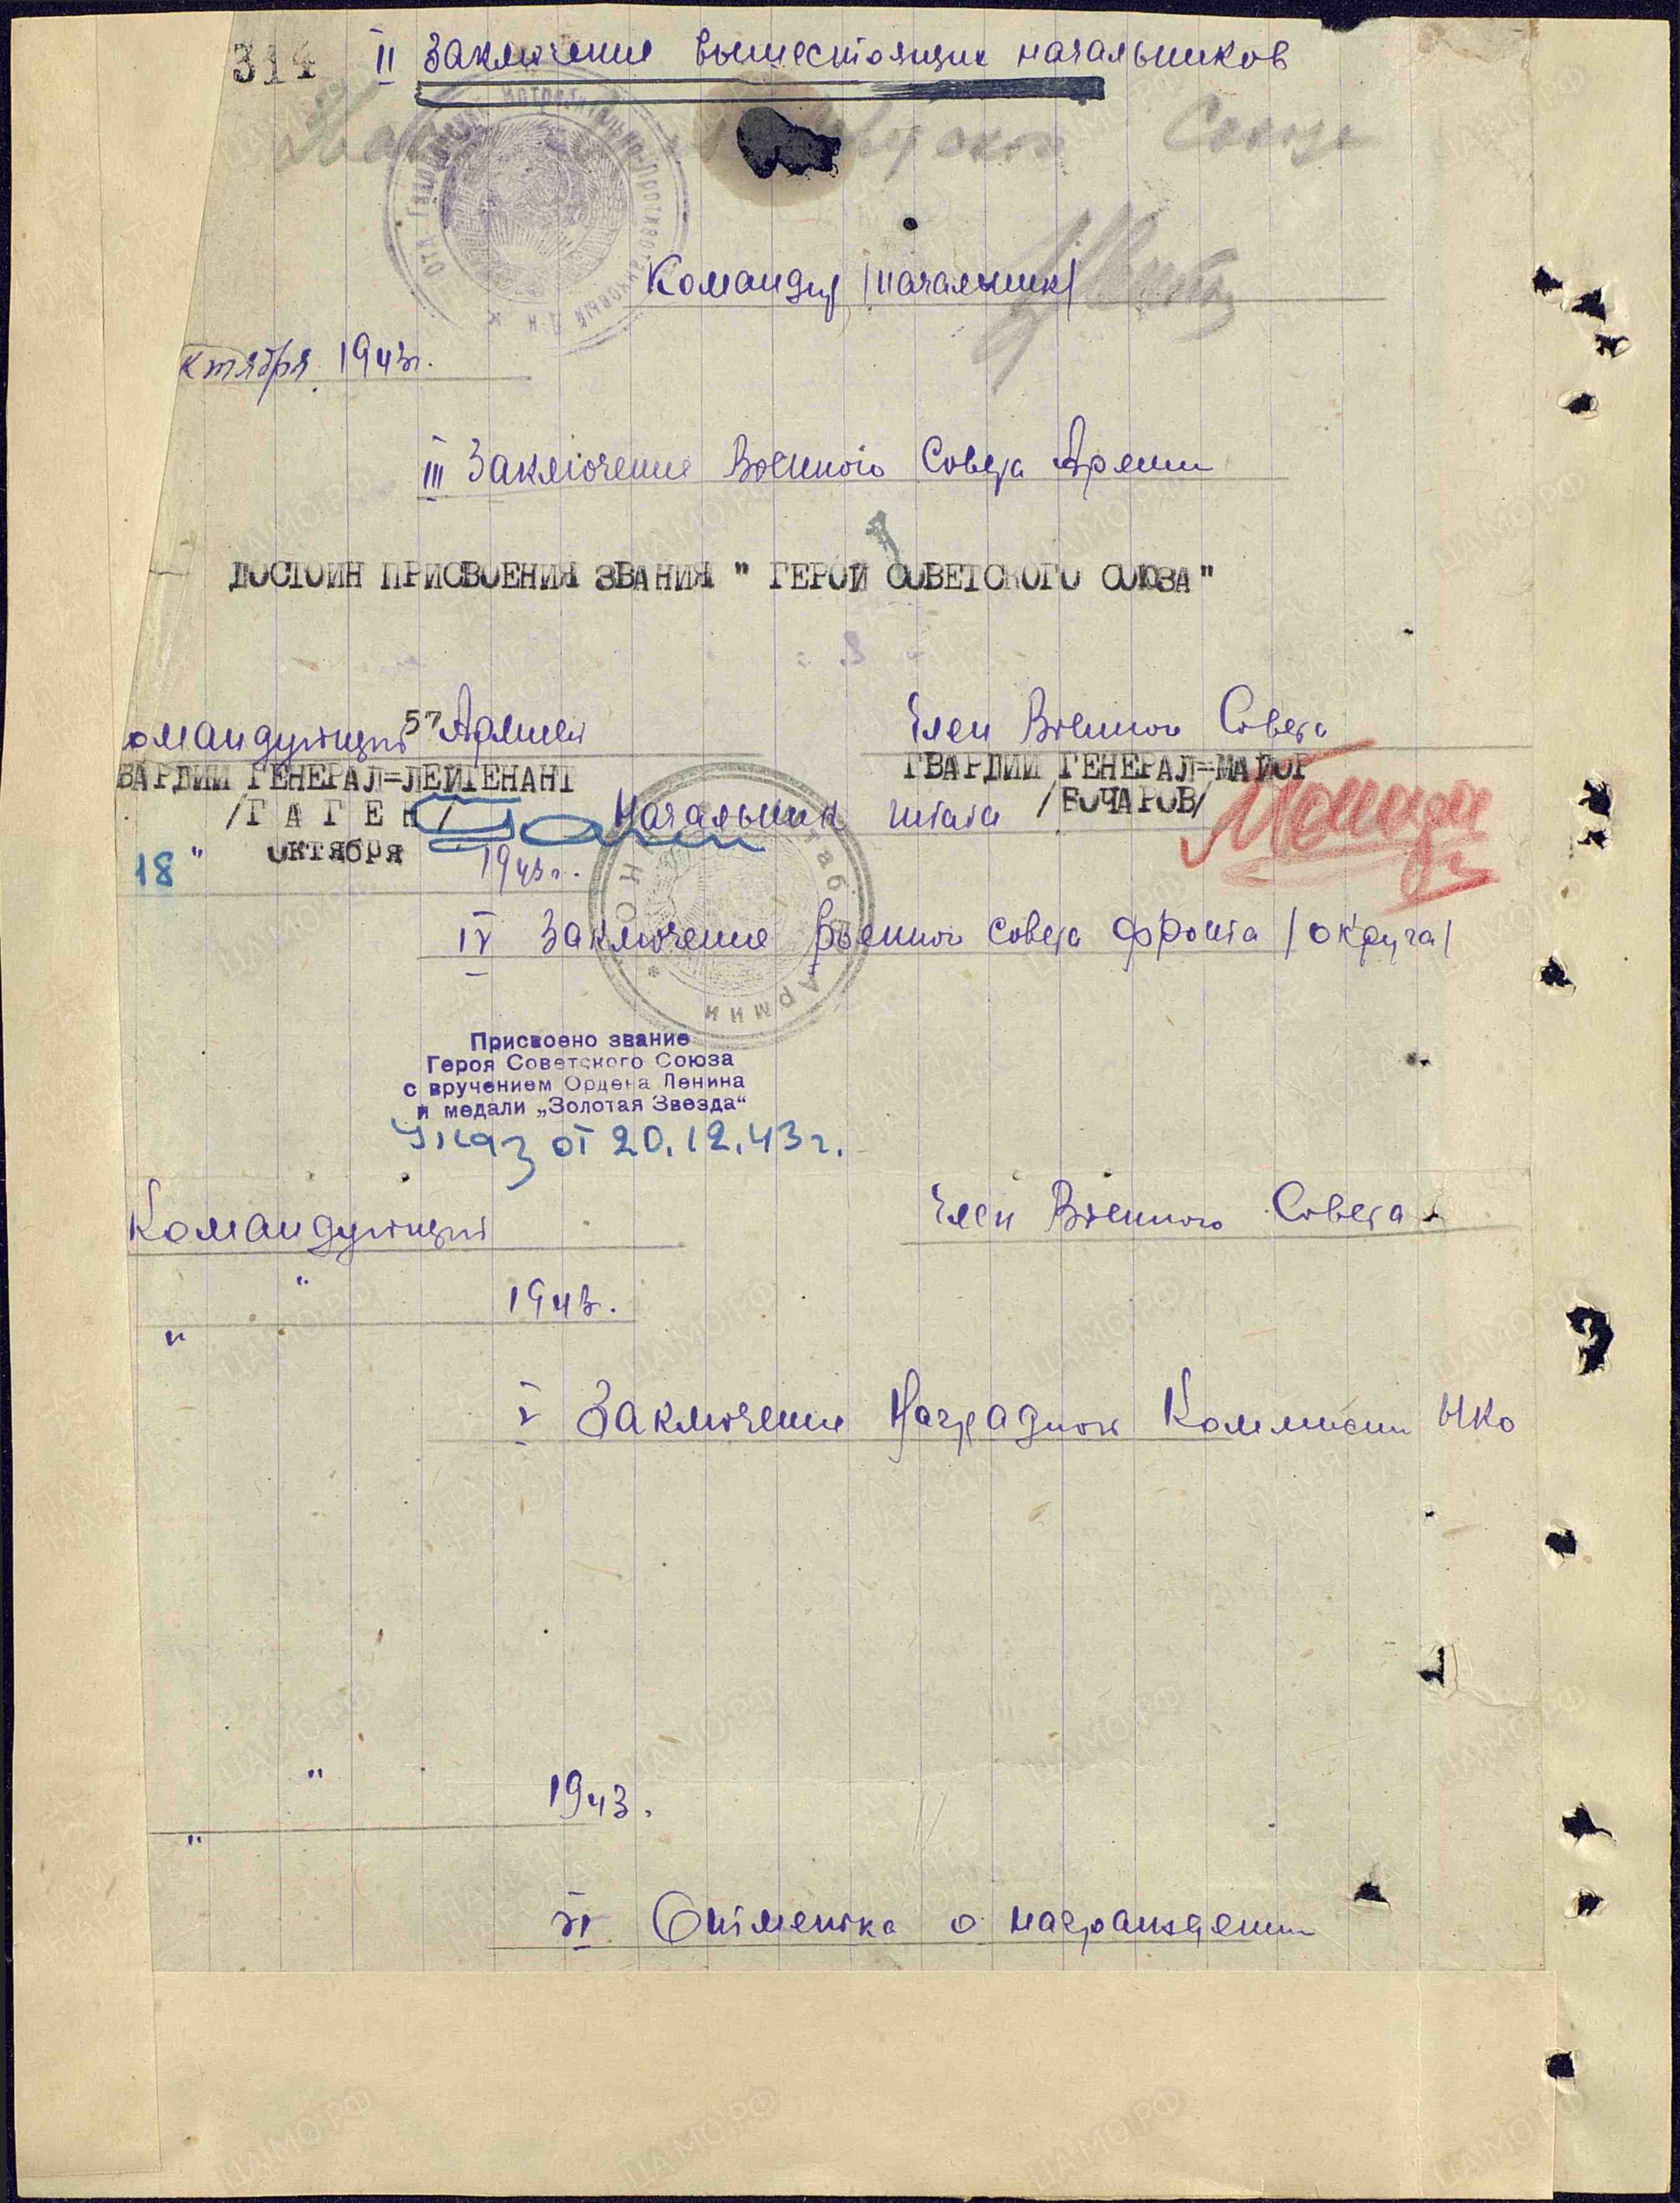 314 II Заключение вышестоящих начальников
Советского Союза
Командир /начальник/
ктября 1943г.
III Заключение Военного Совета Армии
ДОСТОИН ПРИСВОЕНИЯ ЗВАНИЯ " ГЕРОЙ СОВЕТСКОГО СОЮЗА"
омандующий 57 Армией Член Военного Совета
ВАРДИИ ГЕНЕРАЛ=ЛЕЙТЕНАНТ ГВАРДИИ ГЕНЕРАЛ=МАЙОР
/Г А Г Е Н/ Начальник штаба /БОЧАРОВ/
18 " октября 1943г.
IV Заключение Военного совета фронта /округа/
Армии
Присвоено звание
Героя Советского Союза
с вручением Ордена Ленина
и медали „Золотая Звезда“
Указ от 20.12.43г.
Командующий Член Военного Совета
" 1943.
"
V Заключение Наградной Коммисии НКО
" 1943.
"
VI Отметка о награждении